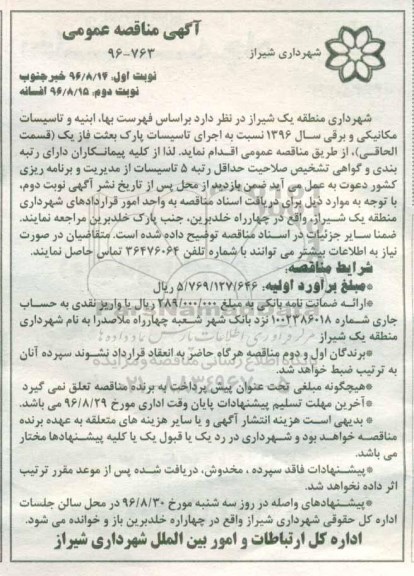 آگهی مناقصه عمومی
۹۶-۷۶۳
شهرداری شیراز
نوبت اول: ۹۶/۸/۱۴ خبر جنوب
نوبت دوم: ۹۶/۸/۱۵ افسانه
شهرداری منطقه یک شیراز در نظر دارد براساس فهرست بها، ابنیه و تاسیسات
مکانیکی و برقی سال ۱۳۹۶ نسبت به اجرای تاسیسات پارک بعثت فاز یک (قسمت
الحاقی)، از طریق مناقصه عمومی اقدام نماید. لذا از کلیه پیمانکاران دارای رتبه
بندی و گواهی تشخیص صلاحیت حداقل رتبه ۵ تاسیسات از مدیریت و برنامه ریزی
کشور دعوت به عمل می آید ضمن بازدید از محل پس از تاریخ نشر آگهی نوبت دوم،
با توجه به موارد ذیل برای دریافت اسناد مناقصه به واحد امور قراردادهای شهرداری
منطقه یک شیراز، واقع در چهارراه خلدبرین، جنب پارک خلدبرین مراجعه نمایند.
ضمنا سایر جزئیات در اسناد مناقصه توضیح داده شده است. متقاضیان در صورت
نیاز به اطلاعات بیشتر می توانند با شماره تلفن ۳۶۴۷۶۰۶۴ تماس حاصل نمایند.
شرایط مناقصه:
*مبلغ برآورد اولیه: ۵/۷۶۹/۱۲۷/۶۴۶ ریال
*ارائه ضمانت نامه بانکی به مبلغ ۲۸۹/۰۰۰/۰۰۰ ریال یا واریز نقدی به حساب
جاری شماره ۱۰۰۲۳۸۶۰۱۸ نزد بانک شهر شعبه چهارراه ملاصدرا به نام شهرداری
منطقه یک شیراز
*برندگان اول و دوم مناقصه هرگاه حاضر به انعقاد قرارداد نشوند سپرده آنان
به ترتیب ضبط خواهد شد.
*هیچگونه مبلغی تحت عنوان پیش پرداخت به برنده مناقصه تعلق نمی گیرد
*آخرین مهلت تسلیم پیشنهادات پایان وقت اداری مورخ ۹۶/۸/۲۹ می باشد.
* بدیهی است هزینه انتشار آگهی و یا سایر هزینه های متعلقه به عهده برنده
مناقصه خواهد بود و شهرداری در رد یک یا قبول یک یا کلیه پیشنهادها مختار
می باشد.
*پیشنهادات فاقد سپرده ، مخدوش، دریافت شده پس از موعد مقرر ترتیب
اثر داده نخواهد شد.
*پیشنهادهای واصله در روز سه شنبه مورخ ۹۶/۸/۳۰ در محل سالن جلسات
اداره کل حقوقی شهرداری شیراز واقع در چهارراه خلدبرین باز و خوانده می شود.
اداره کل ارتباطات و امور بین الملل شهرداری شیراز